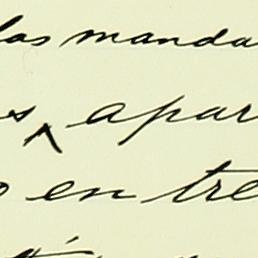 las manda
s ‸ apar
o en tre